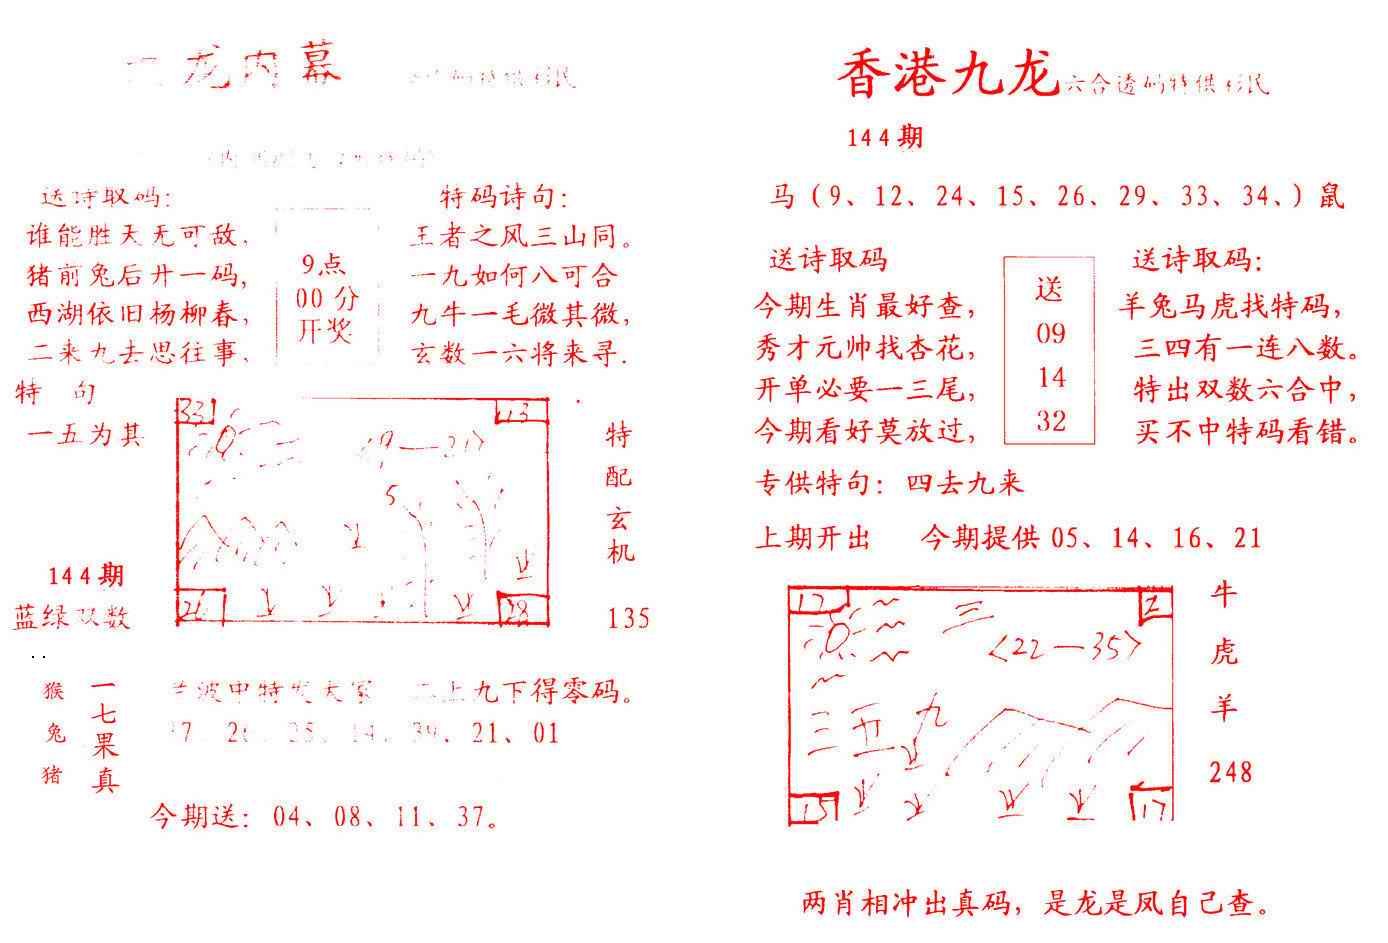 龙内幕
特供彩民
送诗取码：
谁能胜天无可敌，
猪前兔后开一码，
西湖依旧杨柳春，
二来九去思往事，
9点
00分
开奖
特码诗句：
王者之风三山同。
一九如何八可合
九牛一毛微其微，
玄数一六将来寻.
特 句
一五为其
33
13
5
26
28
特
配
玄
机
135
144期
蓝绿双数
猴
兔
猪
一
七
果
真
波中特发大家 二上九下得零码。
39、21、01
今期送：04、08、11、37。
香港九龙六合透码特供彩民
144期
马（9、12、24、15、26、29、33、34、）鼠
送诗取码
今期生肖最好查，
秀才元帅找杏花，
开单必要一三尾，
今期看好莫放过，
送
09
14
32
送诗取码：
羊兔马虎找特码，
三四有一连八数。
特出双数六合中，
买不中特码看错。
专供特句：四去九来
上期开出 今期提供 05、14、16、21
17
2
三
<22—35>
三 五 九
15
17
牛
虎
羊
248
两肖相冲出真码，是龙是凤自己查。